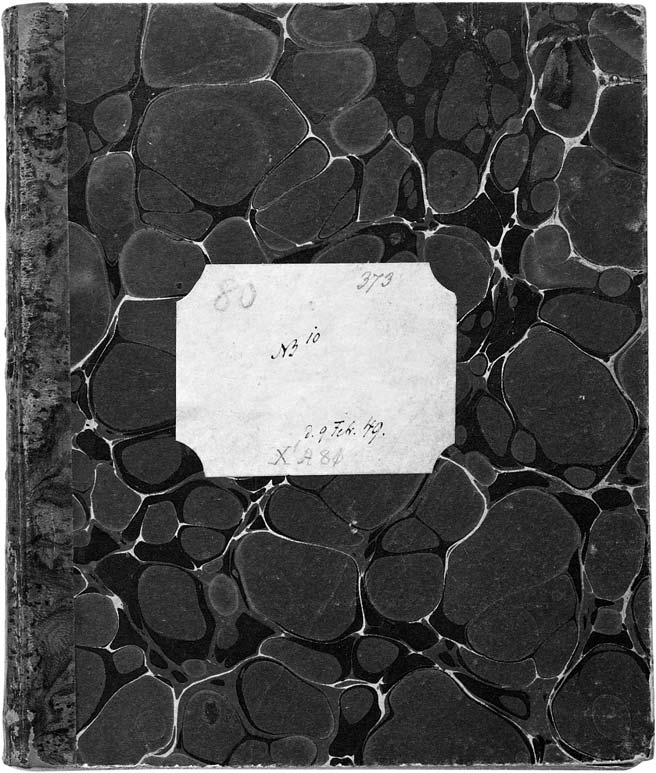 80 373
NB 10
d. 9 Feb. 49.
X A 84